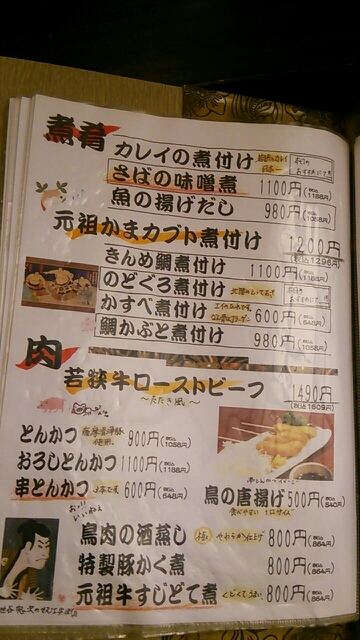 煮肴
カレイの煮付け
さばの味噌煮 1100円(税込1188円)
魚の揚げだし 980円(税込1058円)
元祖かまカブト煮付け 1200円(税込1296円)
きんめ鯛煮付け 1100円(税込1188円)
のどぐろ煮付け
かすべ煮付け 600円(税込648円)
鯛かぶと煮付け 980円(税込1058円)
肉
若狭牛ローストビーフ 1490円(税込1609円)
~たたき風~
とんかつ 使用 900円
おろしとんかつ 1100円(税込1188円)
串とんかつ 600円(税込648円)
鳥の唐揚げ 500円(税込540円)
食べやすい一口サイズ
鳥肉の酒蒸し やわらか仕上げ 800円(税込864円)
特製豚かく煮 800円(税込864円)
元祖牛すじどて煮 800円(税込864円)